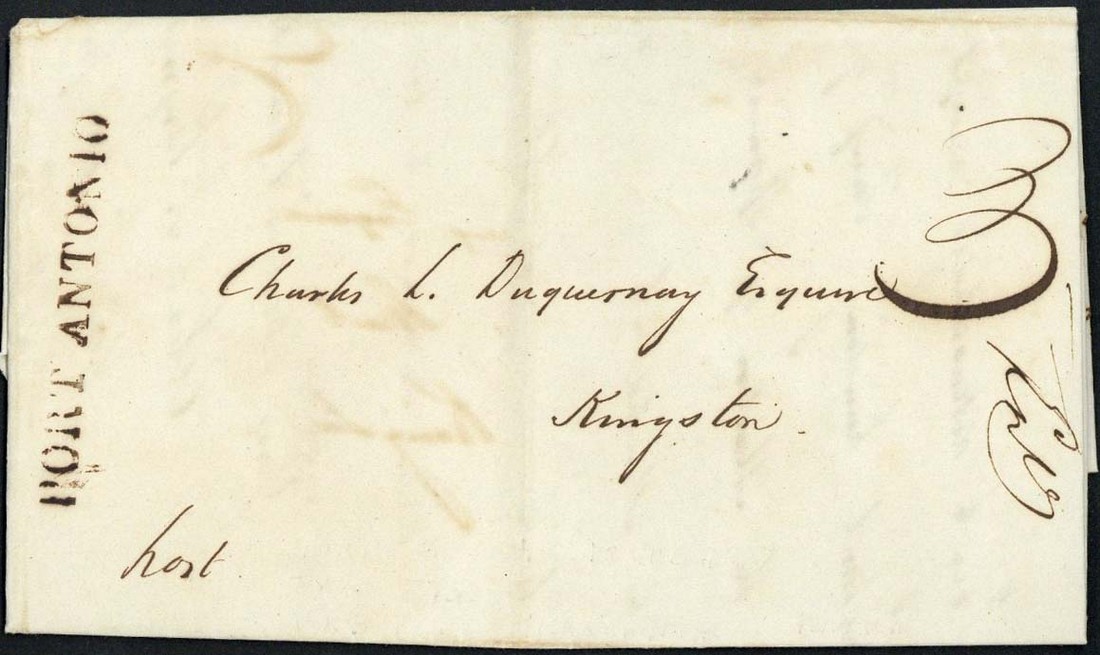 PORT ANTONIO
Charles L. Duquesnay Esquire
Kingston
Post